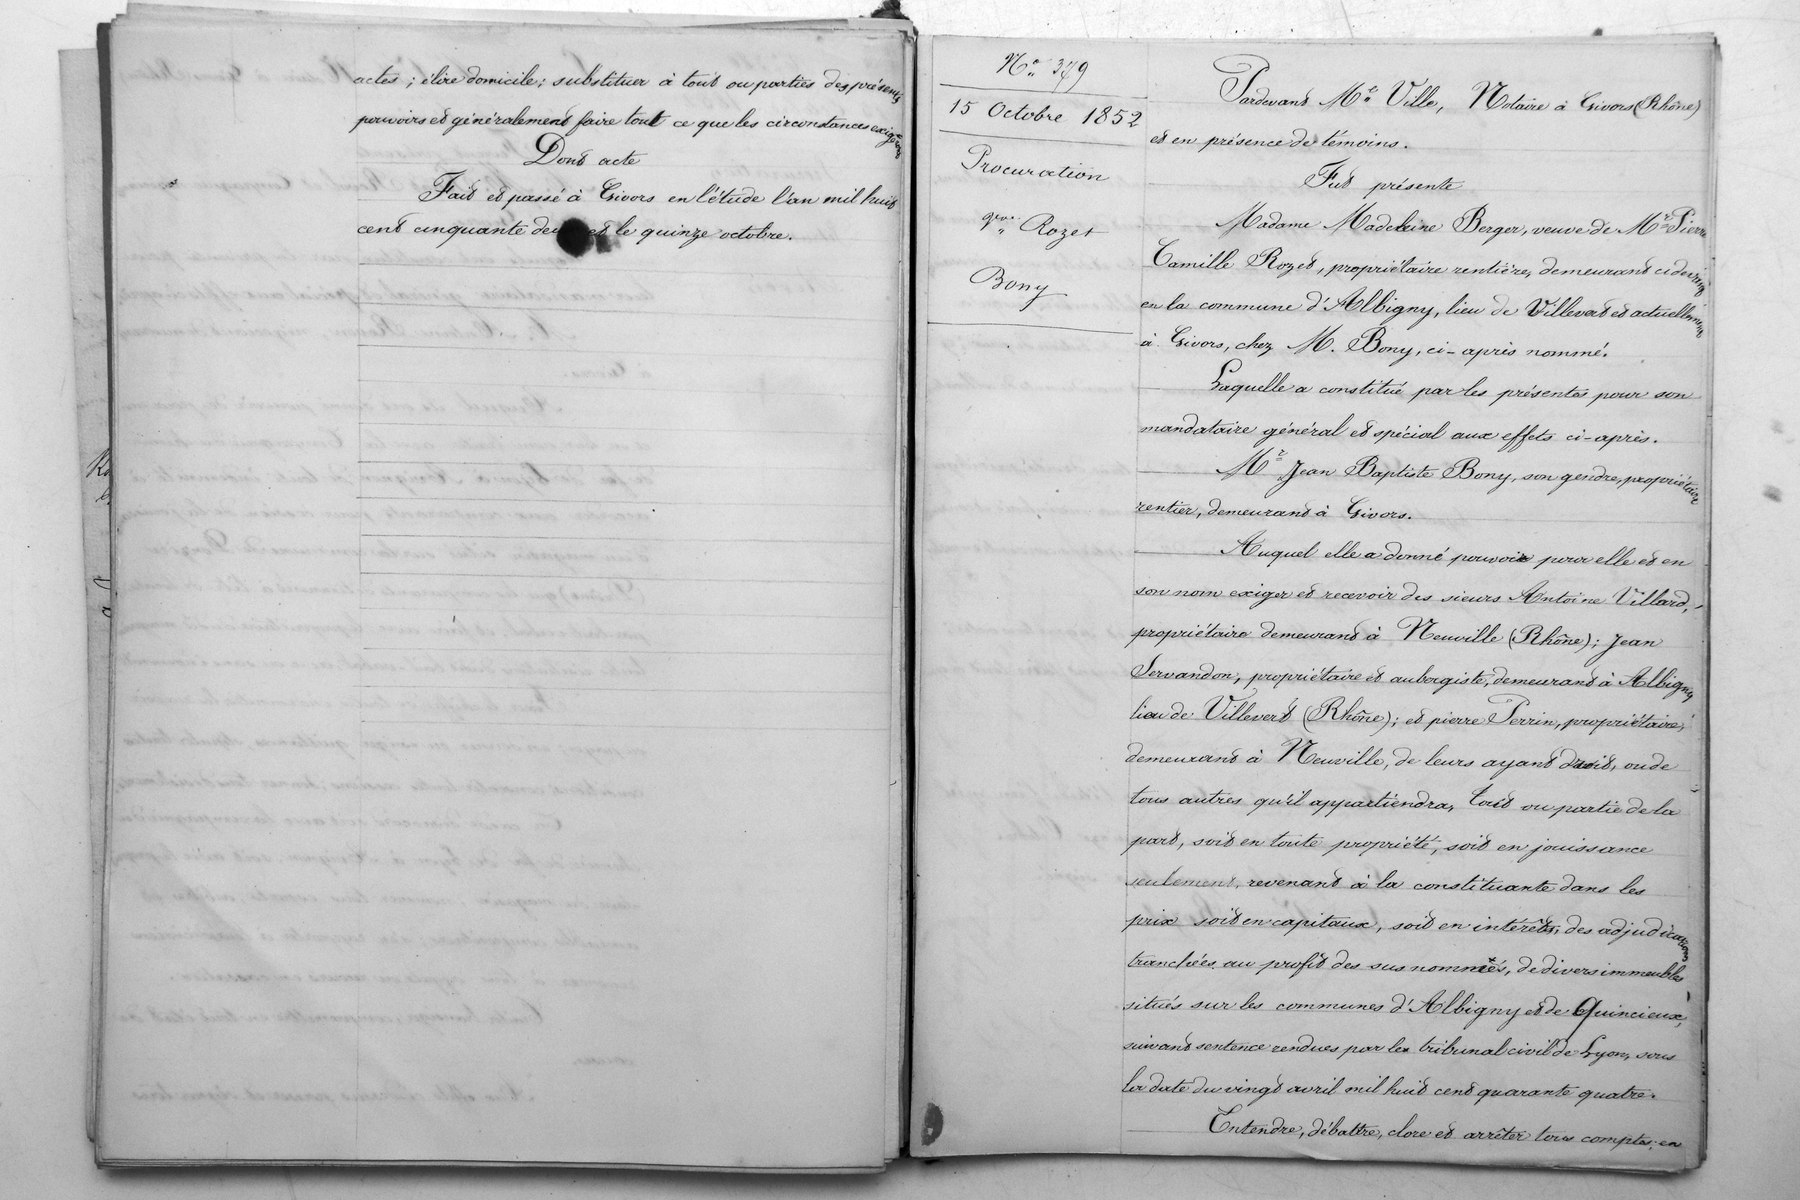 actes; élire domicile; substituer à tout ou parties des présents
pouvoirs et généralement faire tout ce que les circonstances exigeront
Dont acte
Fait et passé à Givors en l'étude l'an mil huit
cent cinquante deux et le quinze octobre.
N° 379
15 Octobre 1852
Procuration
Rozet
Bony
Pardevant Me Ville, Notaire à Givors (Rhône)
et en présence de témoins.
Fut présente
Madame Madeleine Berger, veuve de Mr Pierre
Camille Rozet, propriétaire rentière, demeurant ci devant
en la commune d'Albigny, lieu de Villevert et actuellement
à Givors, chez M. Bony, ci-après nommé.
Laquelle a constitué par les présentes pour son
mandataire général et spécial aux effets ci-après.
Mr Jean Baptiste Bony, son gendre, propriétaire
rentier, demeurant à Givors.
Auquel elle a donné pouvoir pour elle et en
son nom exiger et recevoir des sieurs Antoine Villard,
propriétaire demeurant à Neuville (Rhône); Jean
Servandon, propriétaire et aubergiste, demeurant à Albigny
lieu de Villevert (Rhône); et pierre Perrin, propriétaire,
demeurant à Neuville, de leurs ayant droit, ou de
tous autres qu'il appartiendra, tout ou partie de la
part, soit en toute propriété, soit en jouissance
seulement, revenant à la constituante dans les
prix soit en capitaux, soit en intérêts, des adjudications
tranchées au profit des sus nommés, de divers immeubles
situés sur les communes d'Albigny et de Quincieux,
suivant sentence rendues par le tribunal civil de Lyon, sous
la date du vingt avril mil huit cent quarante quatre.
Entendre, débattre, clore et arrêter tous comptes; en